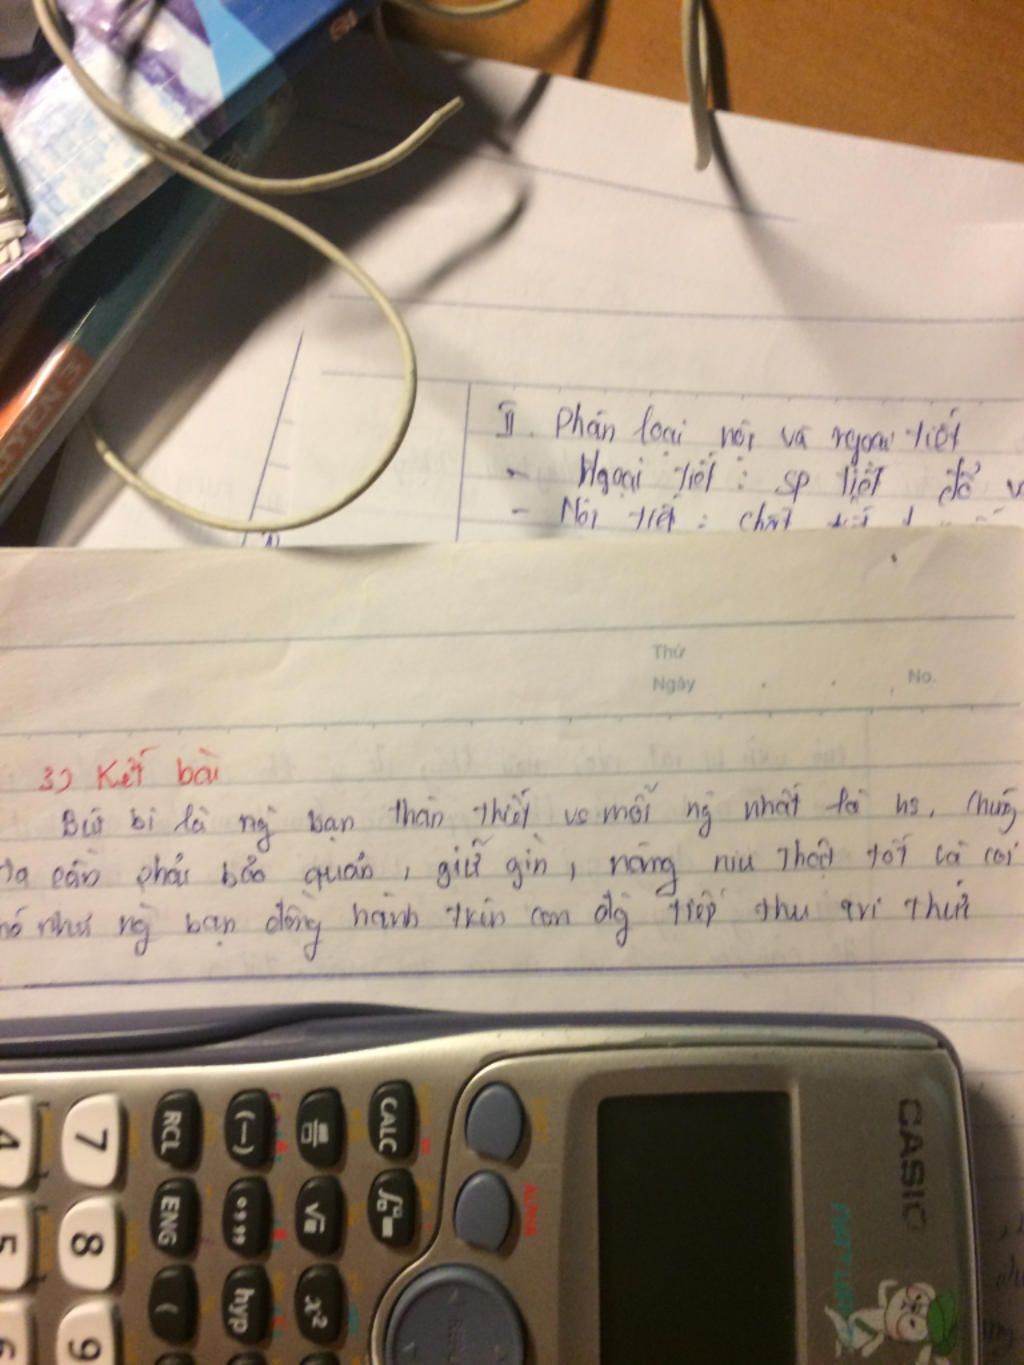 II. Phân loại nội và ngoại tiết
- Ngoại tiết : sp tiết đổ
- Nội tiết : chất tiết
Thứ
Ngày
No.
3) Kết bài
Bút bi là ng` bạn thân thiết vs mỗi ng nhất là hs. Chúng
ta cần phải bảo quản, giữ gìn, nâng niu thật tốt và coi
nó như ng` bạn đồng hành trên con đg` tiếp thu tri thức
CASIO
ALPHA
CALC
RCL
(—)
ENG
hyp
(
x²
7
8
9
4
5
6